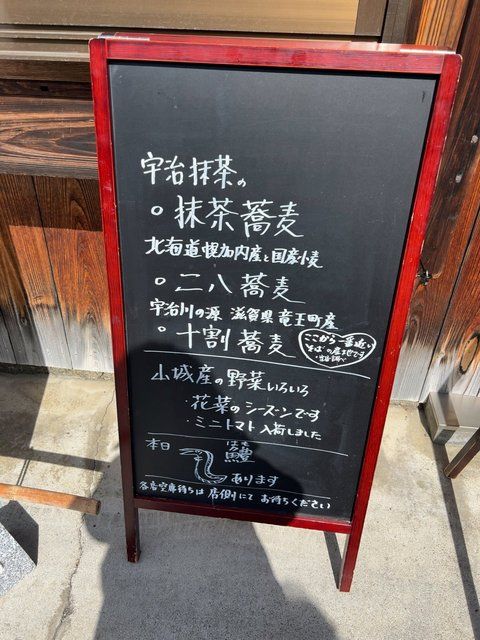 宇治抹茶の
○ 抹茶蕎麦
北海道幌加内産と国産小麦
○ 二八蕎麦
宇治川の源 滋賀県竜王町産
○ 十割蕎麦
ここから一番近い
"そば"の産地です
山城産の野菜いろいろ
・花菜のシーズンです
・ミニトマト入荷しました
はも
本日 鱧
あります
各店空席待ちは店側にてお待ちください